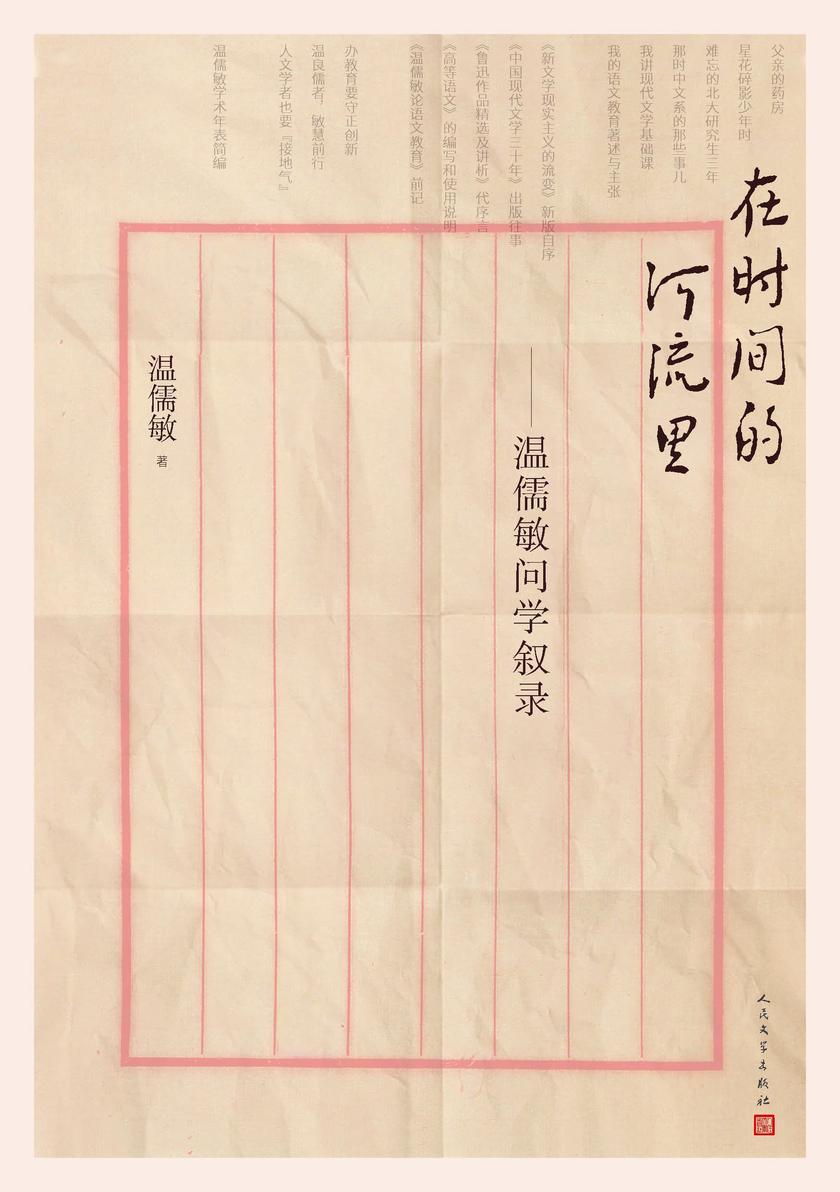 父亲的药房
星花碎影少年时
难忘的北大研究生三年
那时中文系的那些事儿
我讲现代文学基础课
我的语文教育著述与主张
《新文学现实主义的流变》新版自序
《中国现代文学三十年》出版往事
《鲁迅作品精选及讲析》代序言
《高等语文》的编写和使用说明
《温儒敏论语文教育》前记
办教育要守正创新
温良儒者，敏慧前行
人文学者也要『接地气』
温儒敏学术年表简编
在时间的
河流里
——温儒敏问学叙录
温儒敏 著
人民文学出版社